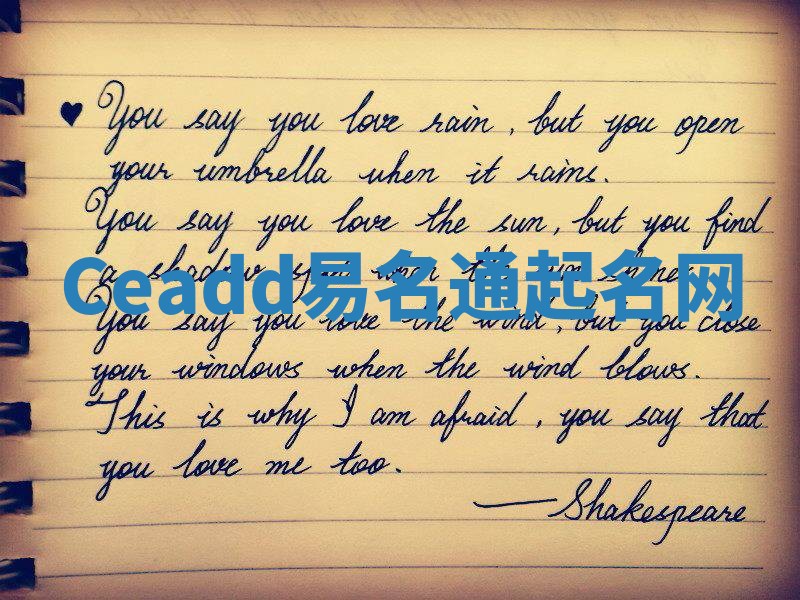 ♥ You say you love rain, but you open
your umbrella when it rains.
You say you love the sun, but you find
a shadow spot when the sun shines.
Ceadd易名通起名网
You say you love the wind, but you close
your windows when the wind blows.
This is why I am afraid, you say that
you love me too.
—Shakespeare